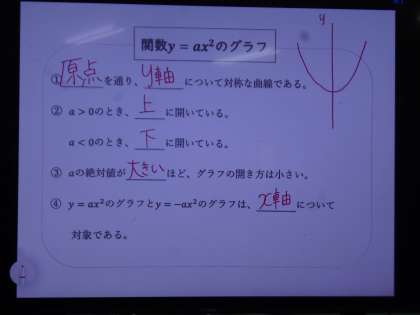 関数y = ax²のグラフ
y
①原点を通り、y軸について対称な曲線である。
② a > 0のとき、上に開いている。
a < 0のとき、下に開いている。
③ aの絶対値が大きいほど、グラフの開き方は小さい。
④ y = ax²のグラフとy = −ax²のグラフは、x軸について
対象である。